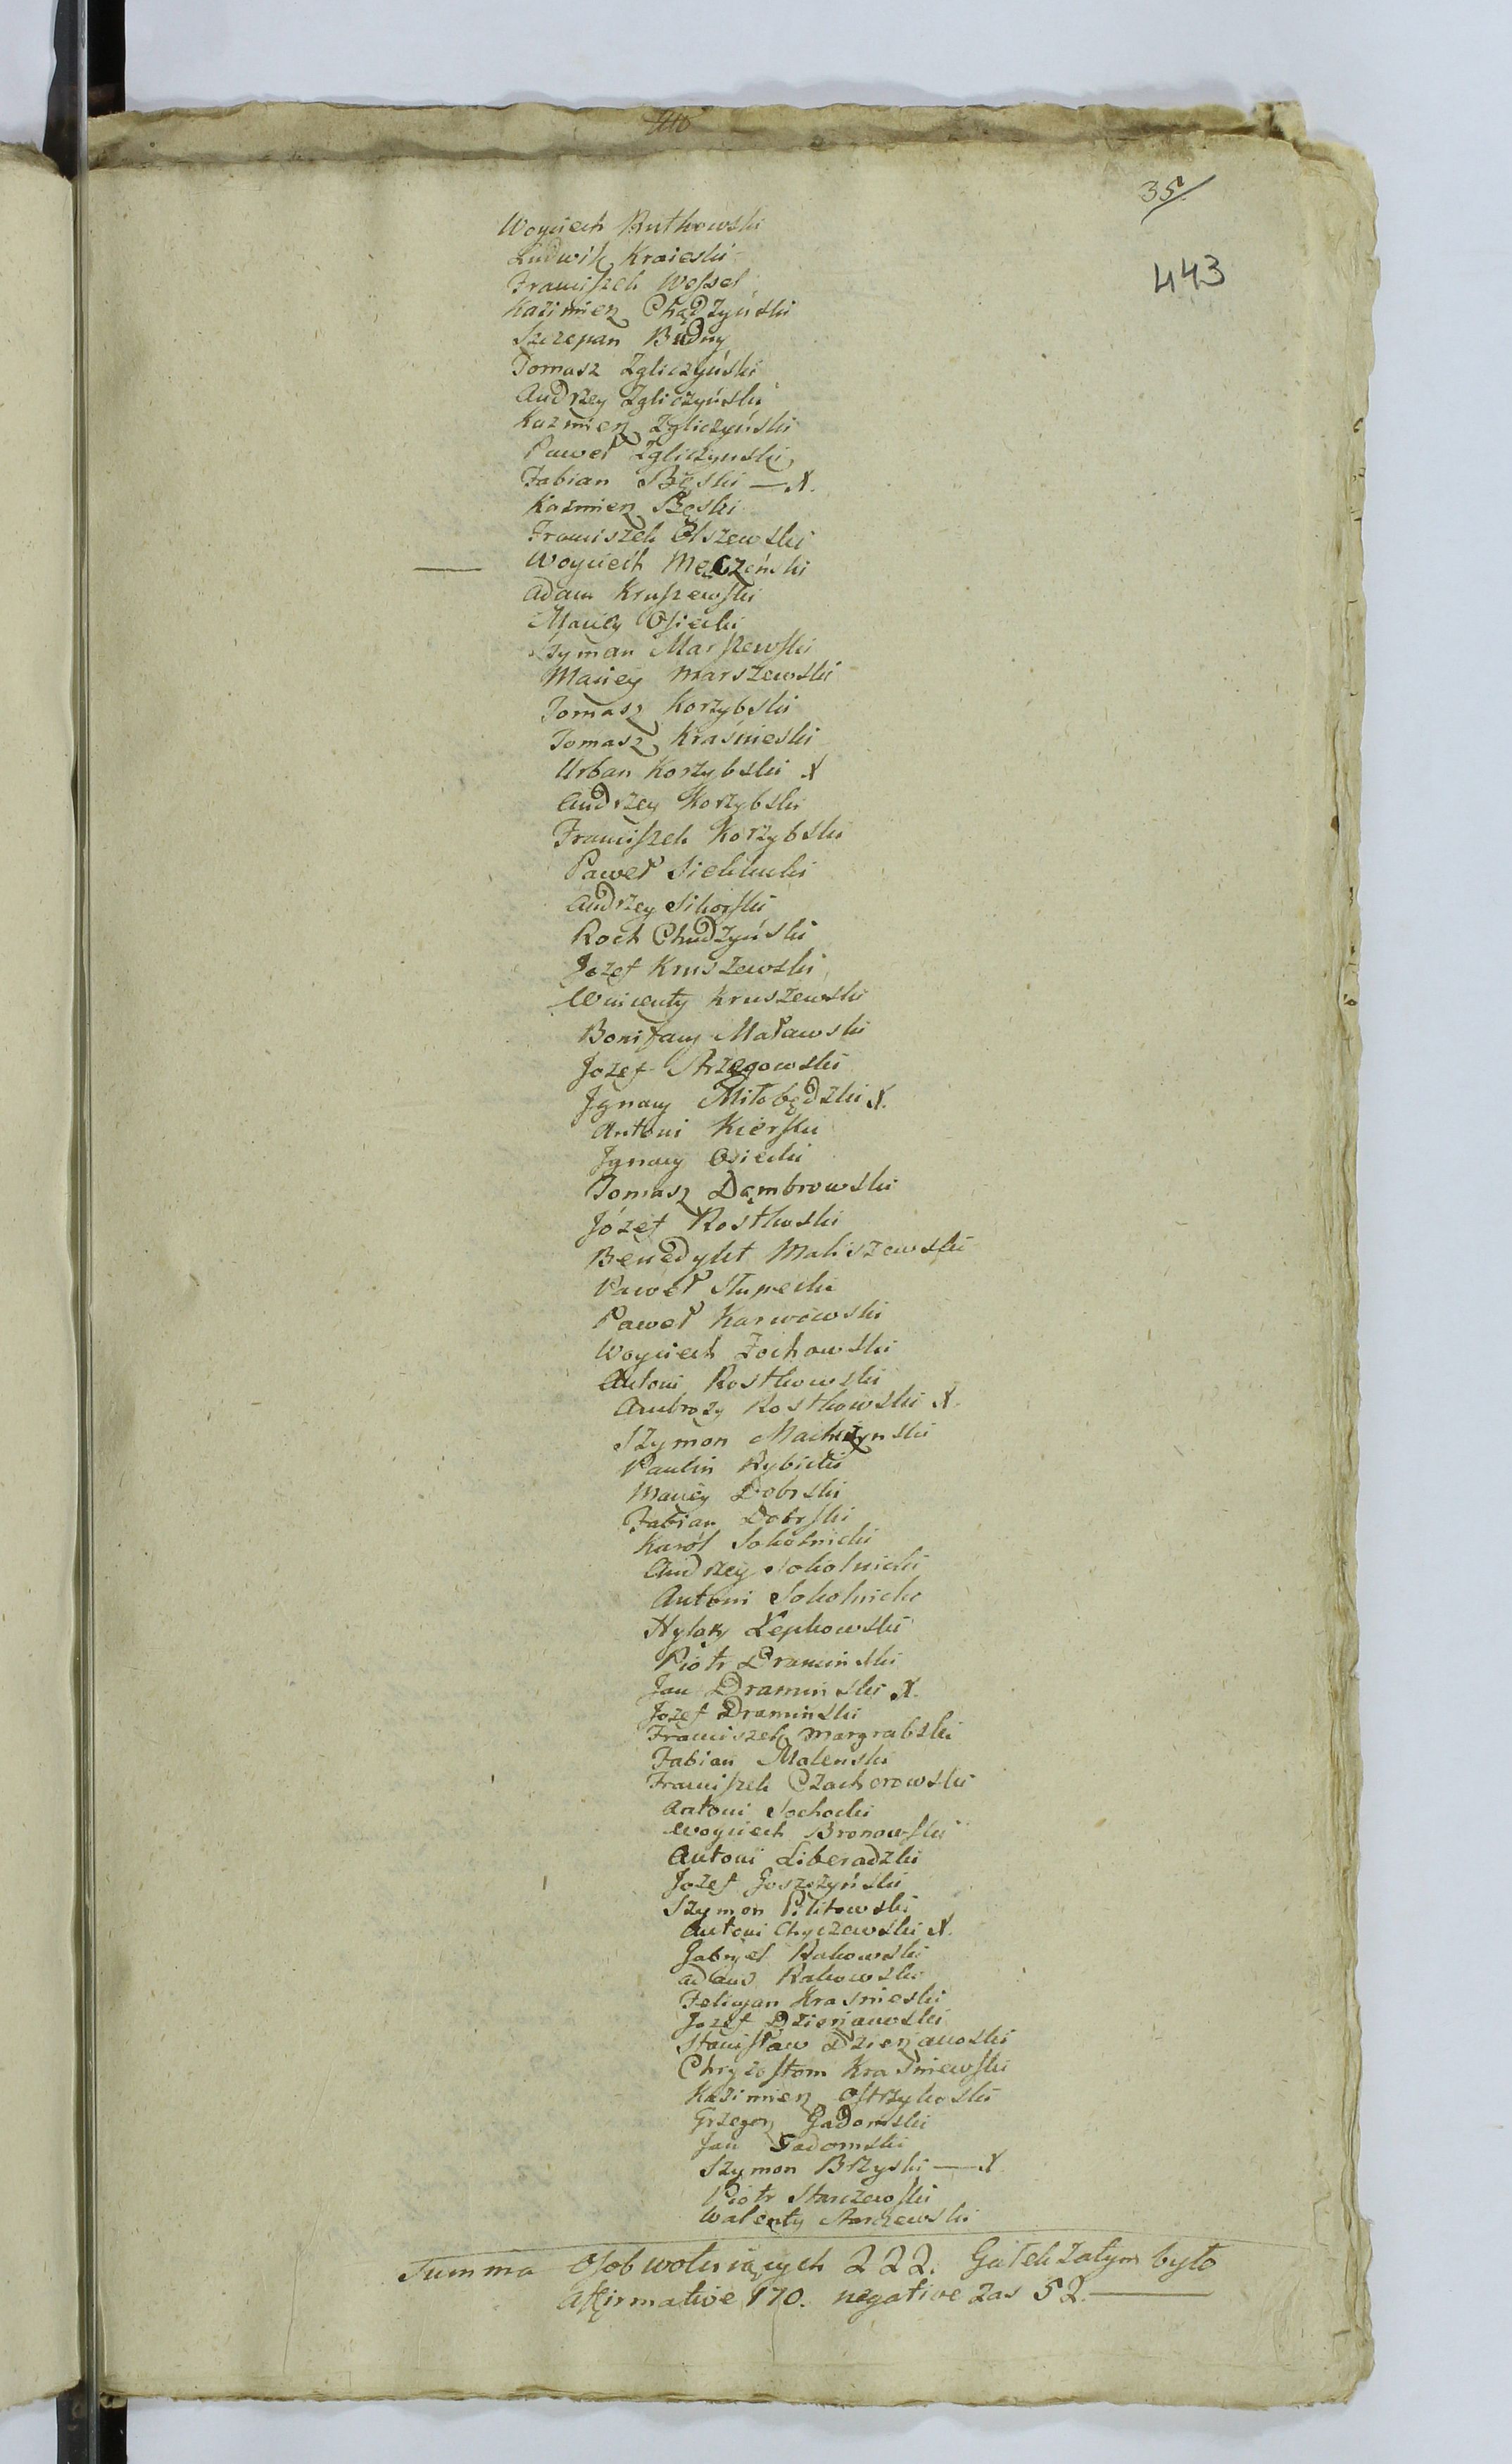 35
443
Woyciech Rutkowski
Ludwik Kraieski
Franciszek Wessel
Kazimierz Chądzyński
Szczepan Budny
Tomasz Zgliczyński
Andrzey Zgliczyński
Kazmierz Zgliczyński
Paweł Zgliczynski
Fabian Bęski — X.
Kazmierz Bęski
Franciszek Olszewski
— Woyciech Męczeński
Adam Kruszewski
Maciey Osiecki
Szyman Marszewski
Maciey Marszewski
Tomasz Korzybski
Tomasz Kraśnieski
Urban Korzybski X
Andrzey Korzybski
Franciszek Korzybski
Paweł Siekłucki
Andrzey Sikorski
Roch Chudzyński
Jozef Kruszewski
Wincenty Kruszewski
Bonifacy Maławski
Jozef Strzegowski
Jgnacy Miłobędzki X.
Antoni Kierski
Jgnacy Osiecki
Tomasz Dąmbrowski
Józef Rostkoski
Benedykt Maliszewski
Paweł Słupecki
Paweł Karwowski
Woyciech Żochowski
Antoni Rostkowski
Ambroży Rostkowski X.
Szymon Machczynski
Paulin Rybicki
Maciey Dobrski
Fabian Dobrski
Karól Sokolnicki
Andrzey Sokolnicki
Antoni Sokolnicki
Hylary Łepkowski
Piotr Dramiński
Jan Dramiński X.
Jozef Dramiński
Franciszek Margrabski
Fabian Malenski
Franciszek Czachorowski
Antoni Sochocki
Woyciech Bronowski
Antoni Liberadzki
Jozef Goszczyński
Szymon Pilitowski
Antoni Chyczewski X.
Gabryel Rakowski
Adam Rakowski
Felicyan Krasnieski
Jozef Dzierżanwski
Stanisław Dzierżanoski
Chryzostom Kraśniewski
Kazimierz Ostrzykoski
Grzegorz Gadomski
Jan Gadomski
Szymon Brzyski — X
Piotr Starczewski
Walenty Starczewski
Summa Osob wotuiących 222. Gałek zatym było
Affirmative 170. negative zas 52. —